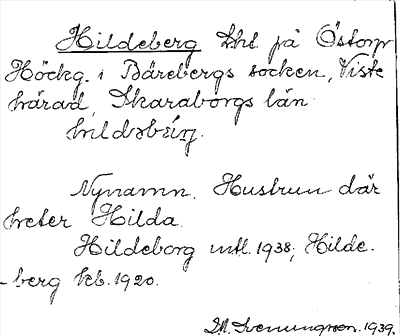 Hildeberg lht på Östorp
Höckg. i Bärebergs socken, Viste
härad, Skaraborgs län
hildəbæ̀rj.
Nynamn. Hustrun där
heter Hilda.
Hildeborg mtl. 1938, Hilde-
-berg kb. 1920.
D.A. Svenungsson. 1939.